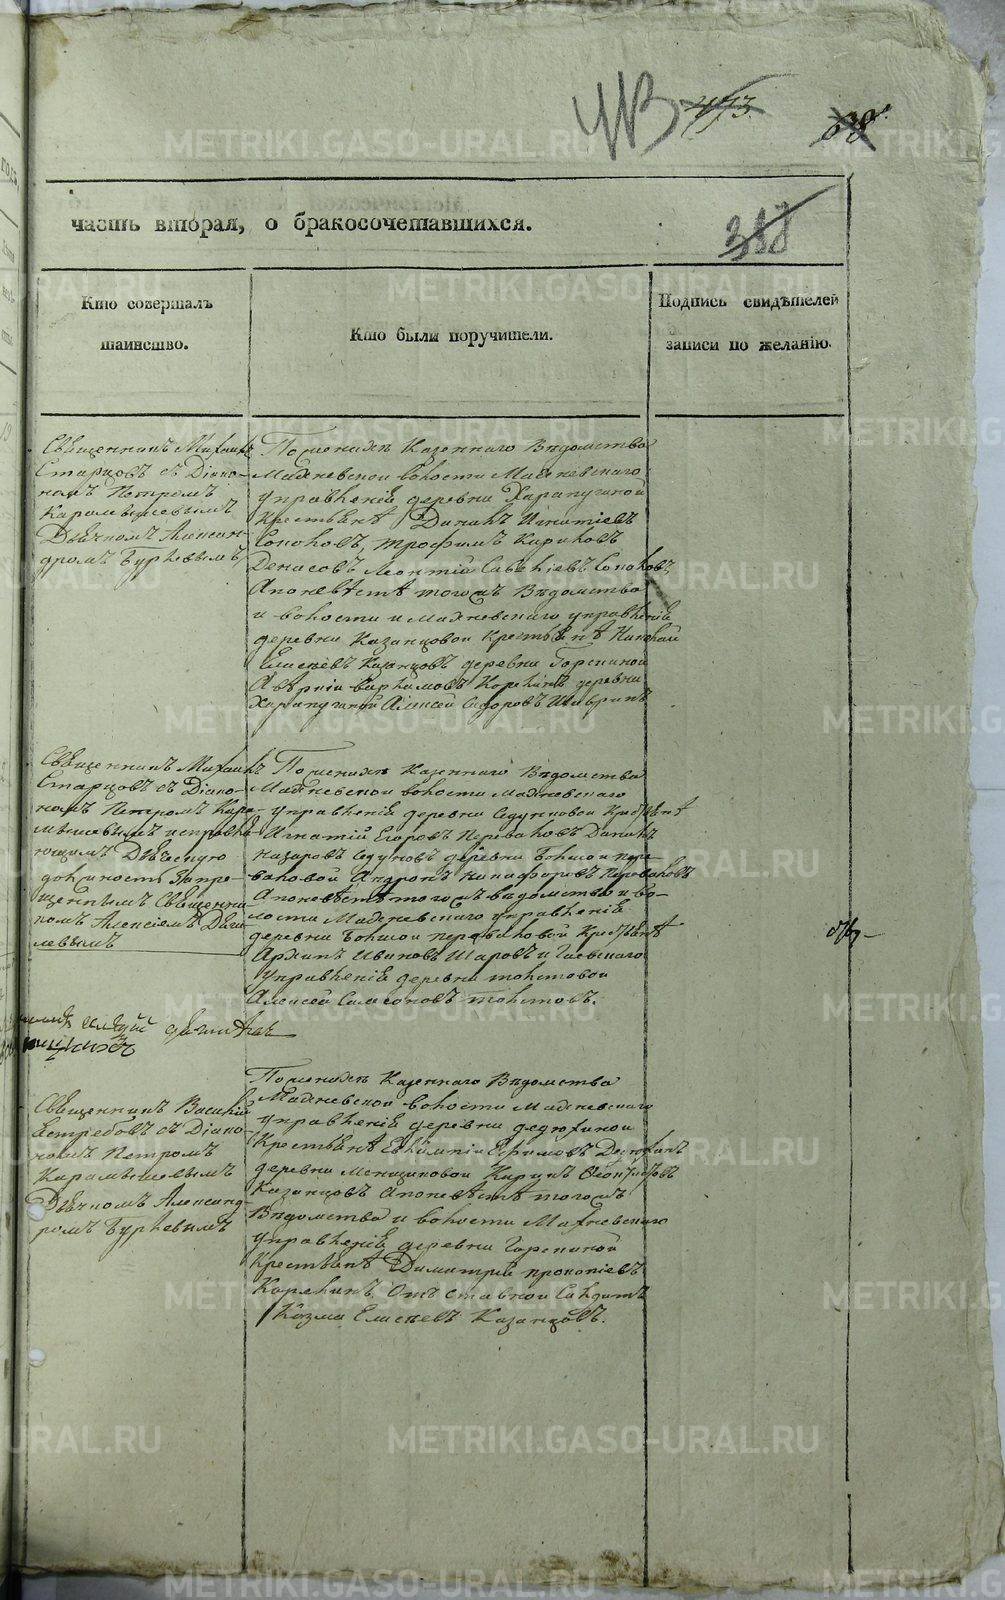 413 473. 68.
часть вторая, о бракосочетавшихся.
388
Кто совершалъ
таинство.
Кто были поручители.
Подпись свидѣтелей
записи по желанію.
Священникъ Михаилъ
Старцовъ съ Діако-
номъ Петромъ
Карамышевымъ
Дьячкомъ Алексан-
дромъ Бурневымъ
По женихѣ Казеннаго Вѣдомства
Махневской волости Махневскаго
управленія деревни Харапугиной
Крестьяне Данилъ Игнатіевъ
Соколовъ, Трофимъ Кириловъ
Денисовъ Леонтій Савеліевъ Соколовъ,
А по невѣстѣ того жъ Вѣдомства
и волости и Махневскаго управленія
деревни Казанцовой Крестьяне Николай
Елисѣевъ Казанцовъ деревни Горскиной
Аверкій Карелинъ деревни
Харапугиной Алексей Сидоровъ Шавринъ
Священникъ Михаилъ
Старцовъ съ Діако-
номъ Петромъ Кара-
мышевымъ исправля-
ющимъ Дьяческую
должность Запре-
щеннымъ Священни-
комъ Алексіемъ
По женихѣ Казеннаго Вѣдомства
Махневской волости Махневскаго
управленія деревни Седунковой Крестьяне
Игнатій Егоровъ Переваловъ Данилъ
Назаровъ Седуновъ деревни Большой пере-
валовой Андронъ Никифоровъ Переваловъ
А по невѣстѣ того жъ вѣдомства и во-
лости Махневскаго управленія
деревни Большой переваловой Крестьяне
Архипъ Ивановъ Шаровъ и Гаевскаго
Управленія деревни толстовой
Алексей Симеоновъ толстовъ.
Священникъ Василій
Ястребовъ съ Діако-
номъ Петромъ
Карамышевымъ
Дьячкомъ Александ-
ромъ Бурневымъ
По женихѣ Казеннаго Вѣдомства
Махневской волости Махневскаго
управленія деревни Дедюхиной
Крестьяне Евфимій Ефимовъ Дедюхинъ
деревни Меньщиковой Карпъ
Казанцовъ А по невѣстѣ того жъ
Вѣдомства и волости Махневскаго
управленія деревни Горскиной
Крестьяне Димитрій Прокопіевъ
Карелинъ Отставной Салдатъ
Козма Елисѣевъ Казанцовъ.
METRIKI.GASO-URAL.RU